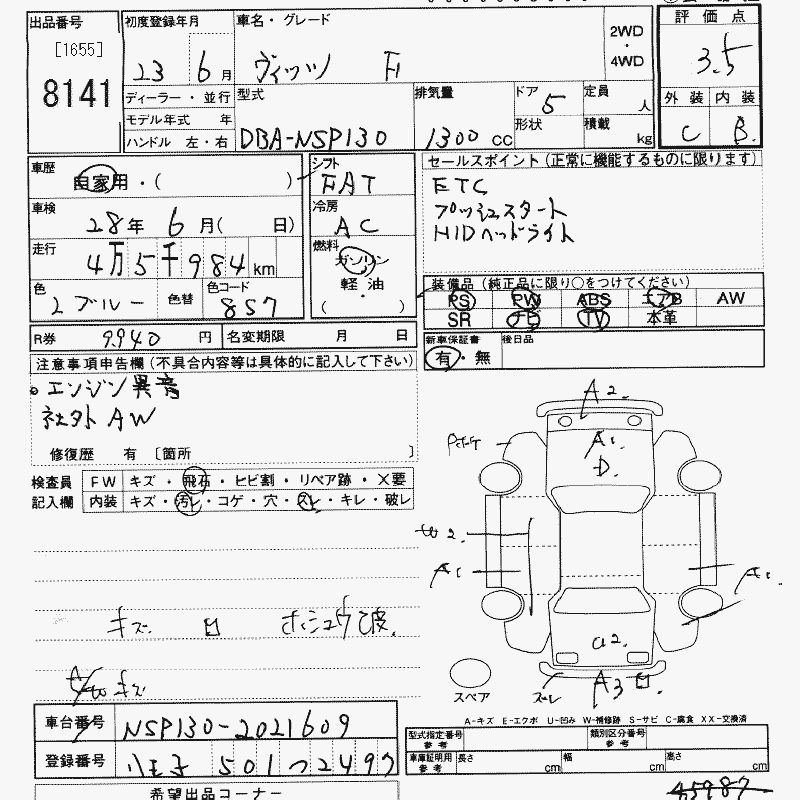 出品番号
[1655]
8141
初度登録年月
23 6月
車名・グレード
ヴィッツ F
2WD
・
4WD
評価点
3.5
外装 内装
C B
ディーラー・並行
モデル年式 年
ハンドル 左・右
型式
DBA-NSP130
排気量
1300 cc
ドア
5
形状
定員
人
積載
kg
車歴
自家用・( )
シフト
FAT
車検
28年 6月( 日)
冷房
AC
走行
4万5千984km
燃料
ガソリン
軽油
・
( )
色
ブルー
色替
色コード
8S7
セールスポイント(正常に機能するものに限ります)
ETC
プッシュスタート
HIDヘッドライト
装備品(純正品に限り○をつけてください)
PS PW ABS エアB AW
SR ナビ TV 本革
R券 9940 円
名変期限 月 日
新車保証書
有・無
後日品
注意事項申告欄(不具合内容等は具体的に記入して下さい)
エンジン異音
社外AW
修復歴 有 〔箇所 〕
検査員
記入欄
FW キズ・飛石・ヒビ割・リペア跡・X要
内装 キズ・汚レ・コゲ・穴・スレ・キレ・破レ
A2.
A1.
D.
W2.
A1
A1.
U2.
A3
スペア
ズレ
キズ
A/W キズ
A-キズ E-エクボ U-凹み W-補修跡 S-サビ C-腐食 XX-交換済
車台番号
NSP130-2021609
登録番号
八王子 501 つ 2497
型式指定番号
参考
類別区分番号
参考
車庫証明用
参考
長さ cm
幅 cm
高さ cm
希望出品コーナー
45987